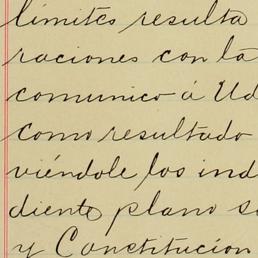 límites resulta
raciones con la
comunico á Ud
como resultado
viéndole los ind
diente plano s
y Constitución